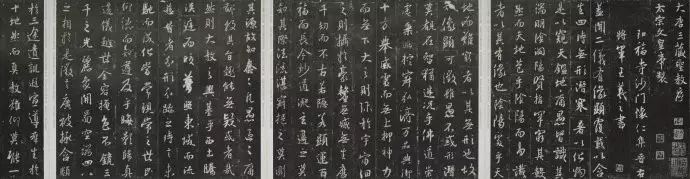 大唐三藏聖教序
太宗文皇帝製
弘福寺沙門懷仁集晉右
將軍王羲之書
蓋聞二儀有像顯覆載以含
生四時無形潛寒暑以化物
是以窺天鑑地庸愚皆識其端
明陰洞陽賢哲罕窮其數
然而天地苞乎陰陽而易識
者以其有像也陰陽處乎天
地而難窮者以其無形也故
知像顯可徵雖愚不惑形潛
莫覩在智猶迷況乎佛道崇
虛乘幽控寂弘濟萬品典御
十方舉威靈而無上抑神力
而無下大之則彌於宇宙細
之則攝於毫釐無滅無生歷
千劫而不古若隱若顯運百
福而長今妙道凝玄遵之莫
知其際法流湛寂挹之莫測
其源故知蠢蠢凡愚區區庸
鄙投其旨趣能無疑或者哉
然則大教之興基乎西土騰
漢庭而皎夢照東域而流
慈昔者分形分跡之時言未
馳而成化當常現常之世民
仰德而知遵及乎晦影歸真
遷儀越世金容掩色不鏡三
千之光麗象開圖空端四八
之相於是微言廣被拯含類
於三途遺訓遐宣導群生於
十地然而真教難仰莫能一